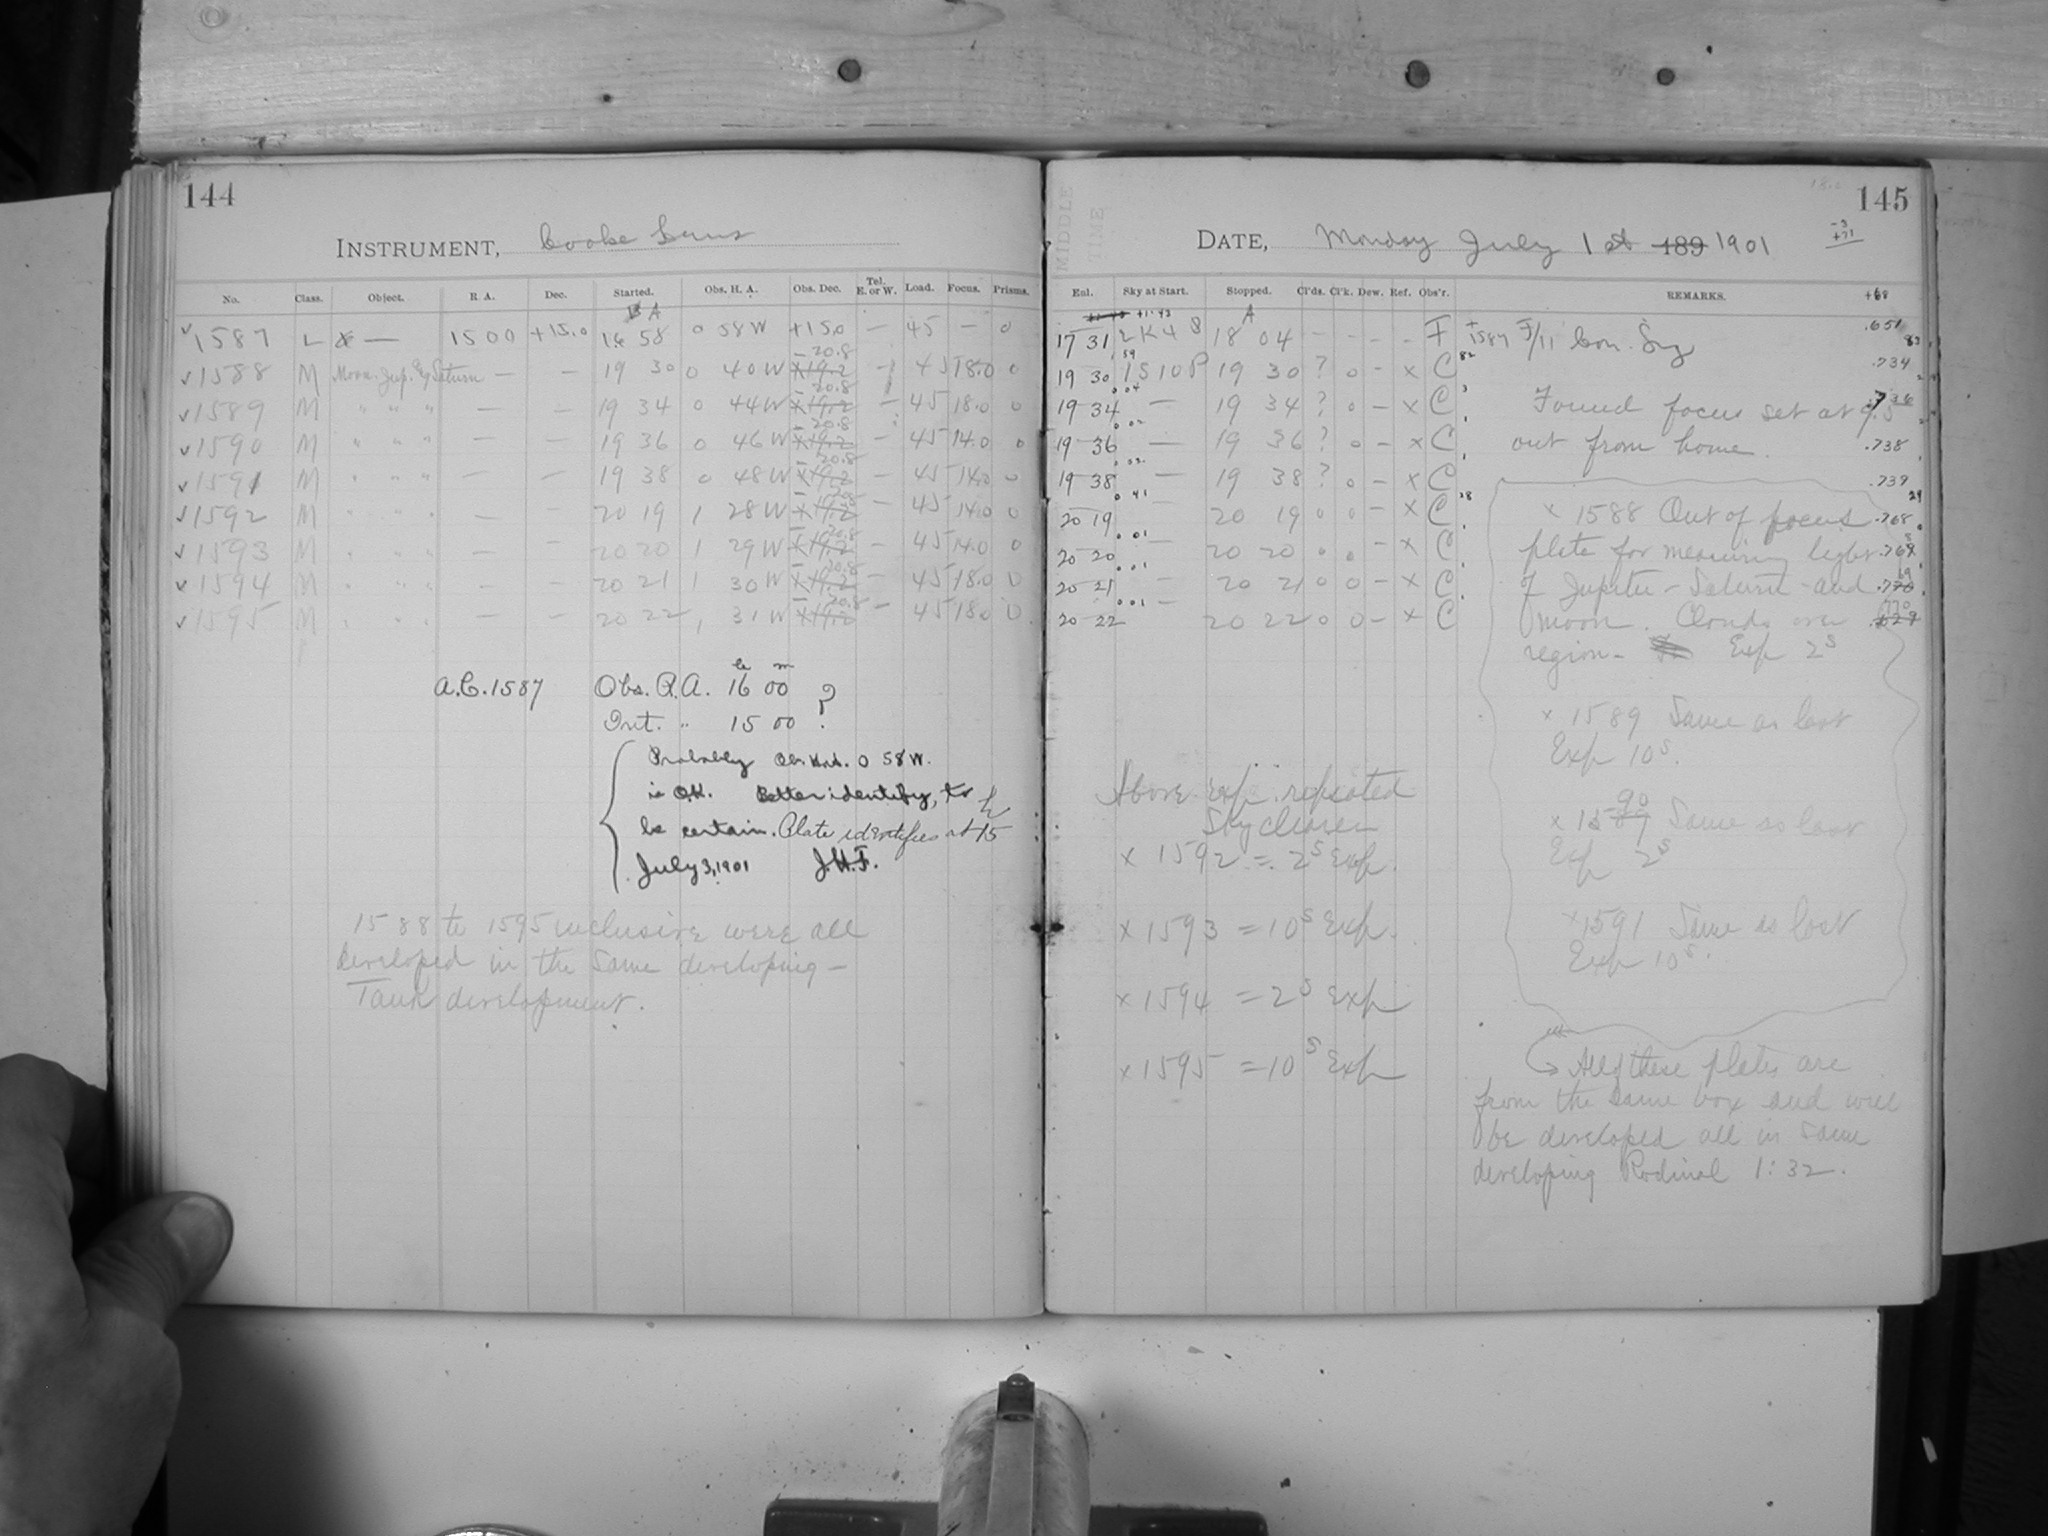 144
INSTRUMENT, Cooke Lens
No. Class. Object. R A. Dec. Started. Obs. H. A. Obs. Dec. Tel. E. or W. Load. Focus. Prisms.
1587 L — 15 00 +15.0 16 58 0 58 W +15.0 — 45 — 0
1588 M Moon. Jup. & Saturn — — 19 30 0 40 W -20.8 +19.2 — 45 18.0 0
1589 M " " " — — 19 34 0 44 W -20.8 +19.2 — 45 18.0 0
1590 M " " " — — 19 36 0 46 W -20.8 +19.2 — 45 14.0 0
1591 M " " " — — 19 38 0 48 W -20.8 +19.2 — 45 14.0 0
1592 M " " " — — 20 19 1 28 W -20.8 +19.2 — 45 14.0 0
1593 M " " " — — 20 20 1 29 W -20.8 +19.2 — 45 14.0 0
1594 M " " " — — 20 21 1 30 W -20.8 +19.2 — 45 18.0 0
1595 M " " " — — 20 22 1 31 W -20.8 +19.2 — 45 18.0 0
h m
A.C. 1587 Obs. R.A. 16 00 ?
Int. " 15 00
Probably Obs. H.A. 0 58 W.
is O.K. Better identify, to
be certain. Plate identifies at 15 h
July 3, 1901 J.H.F.
1588 to 1595 inclusive were all
developed in the same developing —
Tank development.
MIDDLE
TIME
145
DATE, Monday July 1st 189 1901
-3
+71
+68
Enl. Sky at Start. Stopped. Cl'ds. Cl'k. Dew. Ref. Obs'r. REMARKS.
17 31 2 K 4 8 18 04 — — — — F 1587 F/11 Con. Sky .651
19 30 1 S 10 P 19 30 ? 0 — x C .734
19 34 — 19 34 ? 0 — x C Found focus set at 9.5 .736
19 36 — 19 36 ? 0 — x C out from home. .738
19 38 — 19 38 ? 0 — x C .739
20 19 — 20 19 0 0 — x C x 1588 Out of focus .768
20 20 — 20 20 0 0 — x C plate for measuring light .769
20 21 — 20 21 0 0 — x C of Jupiter - Saturn - and .770
20 22 20 22 0 0 — x C moon. Clouds over
region - Exp 2s
x 1589 Same as last
Exp 10s.
x 1590 Same as last
Exp 2s
x 1591 Same as last
Exp 10s.
Above exp. repeated
Sky clearer
x 1592 = 2s Exp.
x 1593 = 10s Exp.
x 1594 = 2s Exp
x 1595 = 10s Exp
All these plates are
from the same box and will
be developed all in same
developing Rodinal 1:32.